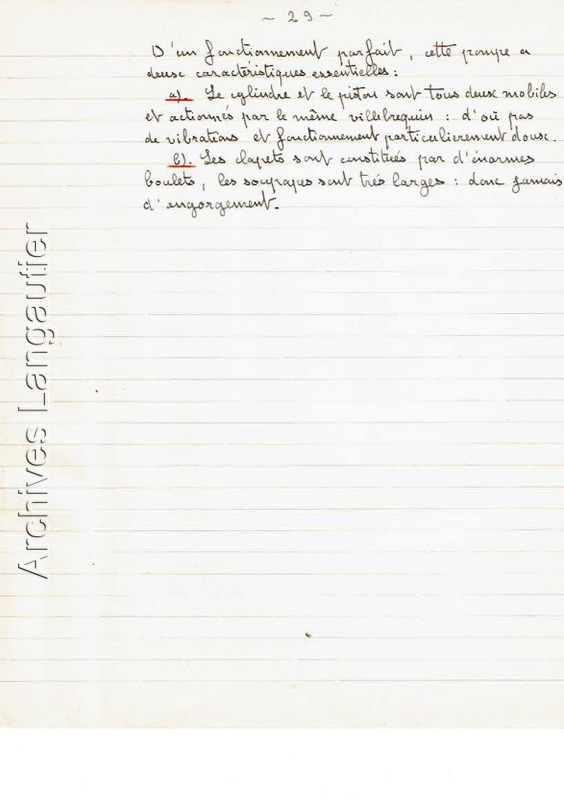 ~ 29 ~
D'un fonctionnement parfait, cette pompe a
deux caractéristiques essentielles :
a). Le cylindre et le piston sont tous deux mobiles
et actionnés par le même villebrequin : d'où pas
de vibrations et fonctionnement particulièrement doux.
b). Les clapets sont constitués par d'énormes
boulets, les soupapes sont très larges : donc jamais
d'engorgement.
Archives Langautier